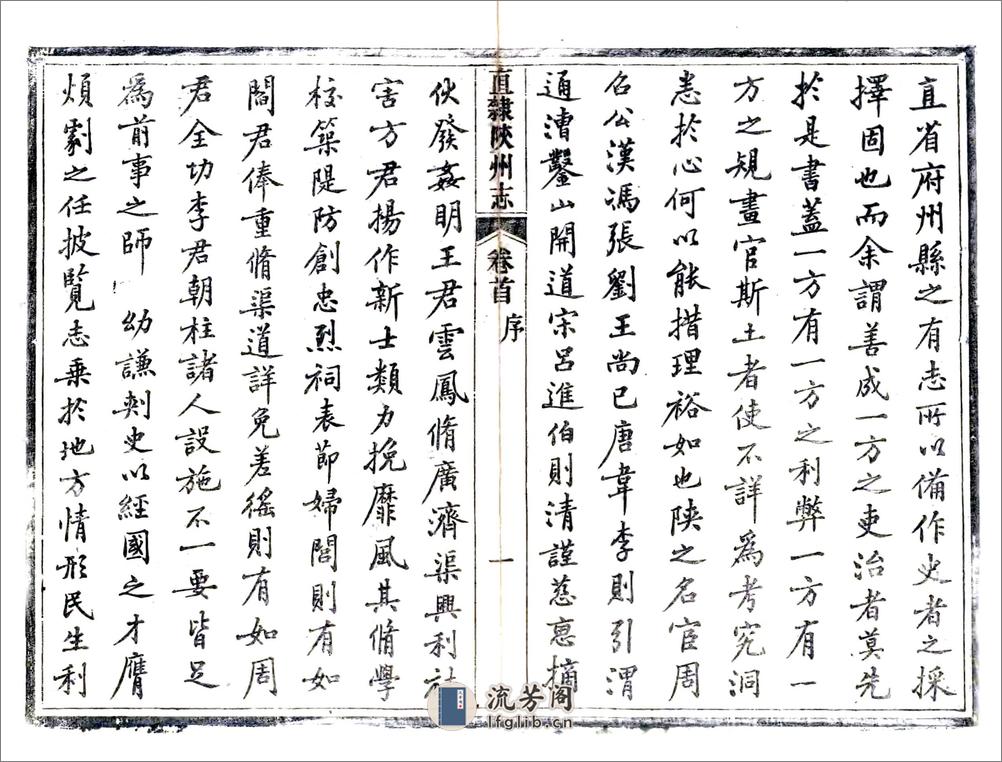 直省府州縣之有志所以備作史者之採
擇固也而余謂善成一方之吏治者莫先
於是書蓋一方有一方之利弊一方有一
方之規畫官斯土者使不詳為考究洞
悉於心何以能措理裕如也陝之名宦周
召公漢馮張劉王尚已唐韋李則引渭
通漕鑿山開道宋呂進伯則清謹慈惠摘
直隸陝州志 卷首 序 一
伏發姦明王君雲鳳脩廣濟渠興利社
害方君揚作新士類力挽靡風其脩學
校築隄防創忠烈祠表節婦閭則有如
閻君俸重脩渠道詳免差徭則有如周
君全功李君朝柱諸人設施不一要皆足
為前事之師 幼謙刺史以經國之才膺
煩劇之任披覽志乘於地方情形民生利
流芳閣
lfglib.cn